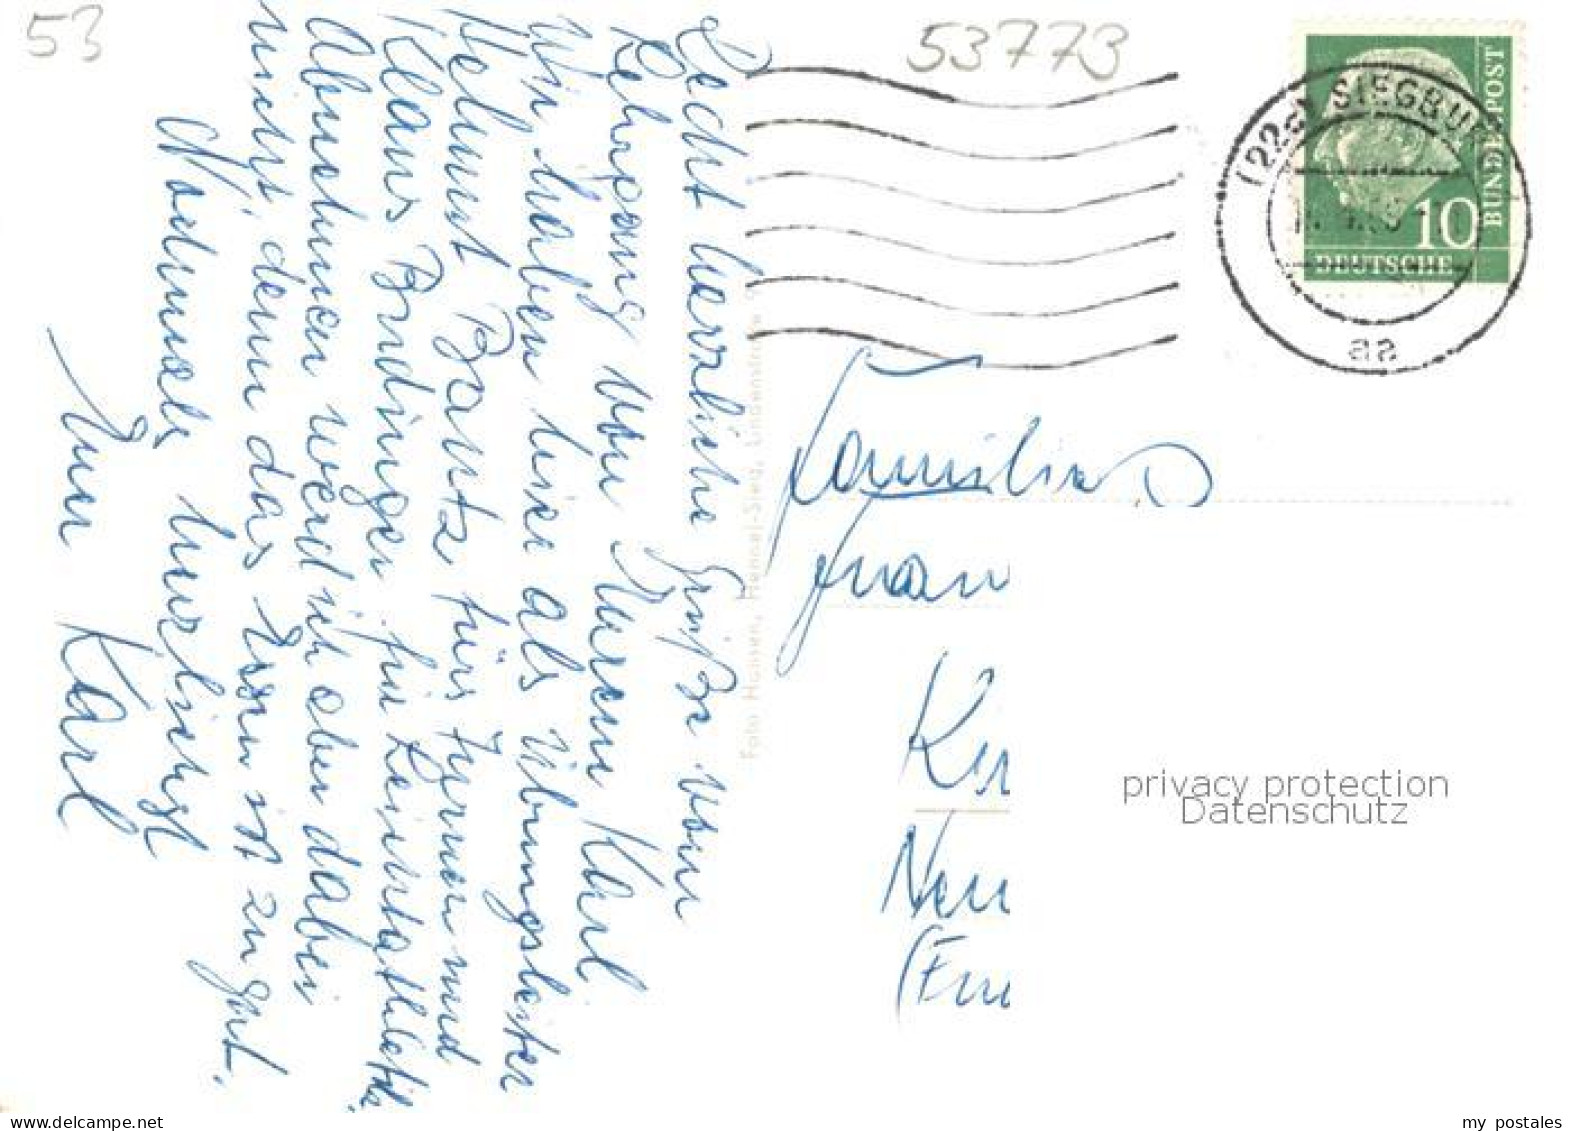 53
53773
(22c) SIEGBURG
aa
10
DEUTSCHE
BUNDESPOST
Recht herzliche Grüße vom
Lehrgang von Eurem Karl.
Wir haben hier als Übungsleiter
Helmut Bantz fürs Turnen und
Klaus Brdinger für Leichtathletik.
Abnehmen werd ich aber dabei
nicht, denn das Essen ist zu gut.
Nochmals herzlichst
Euer Karl
Foto Hansen, Hennef-Sieg, Lindenstraße
Familie
Fran
Ker
Neu
privacy protection
Datenschutz
my postales